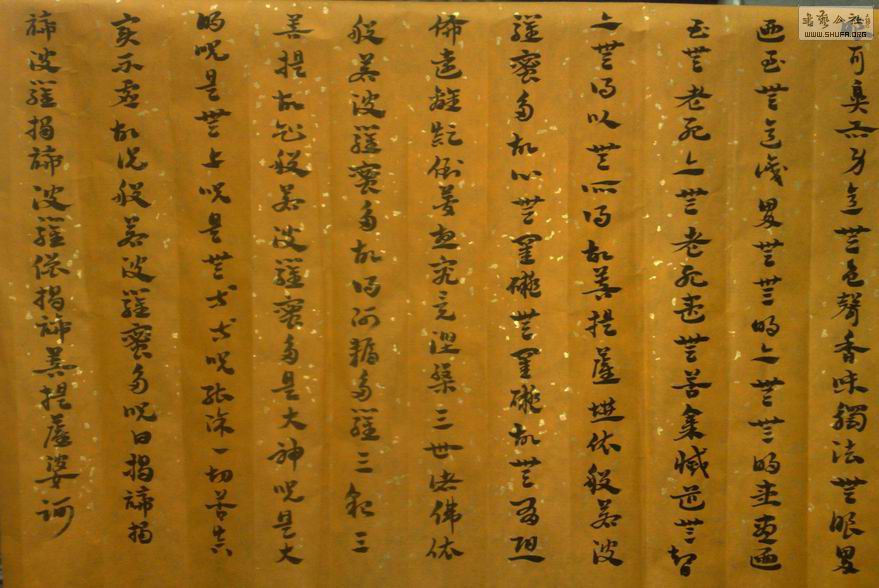 書藝公社
WWW.SHUFA.ORG
耳鼻舌身意無色聲香味觸法無眼界
迺至無意識界無無明亦無無明盡迺
至無老死亦無老死盡無苦集滅道無智
亦無得以無所得故菩提薩埵依般若波
羅蜜多故心無罣礙無罣礙故無有恐
怖遠離顛倒夢想究竟涅槃三世諸佛依
般若波羅蜜多故得阿耨多羅三藐三
菩提故知般若波羅蜜多是大神呪是大
明呪是無上呪是無等等呪能除一切苦真
實不虛故說般若波羅蜜多呪曰揭諦揭
諦波羅揭諦波羅僧揭諦菩提薩婆訶